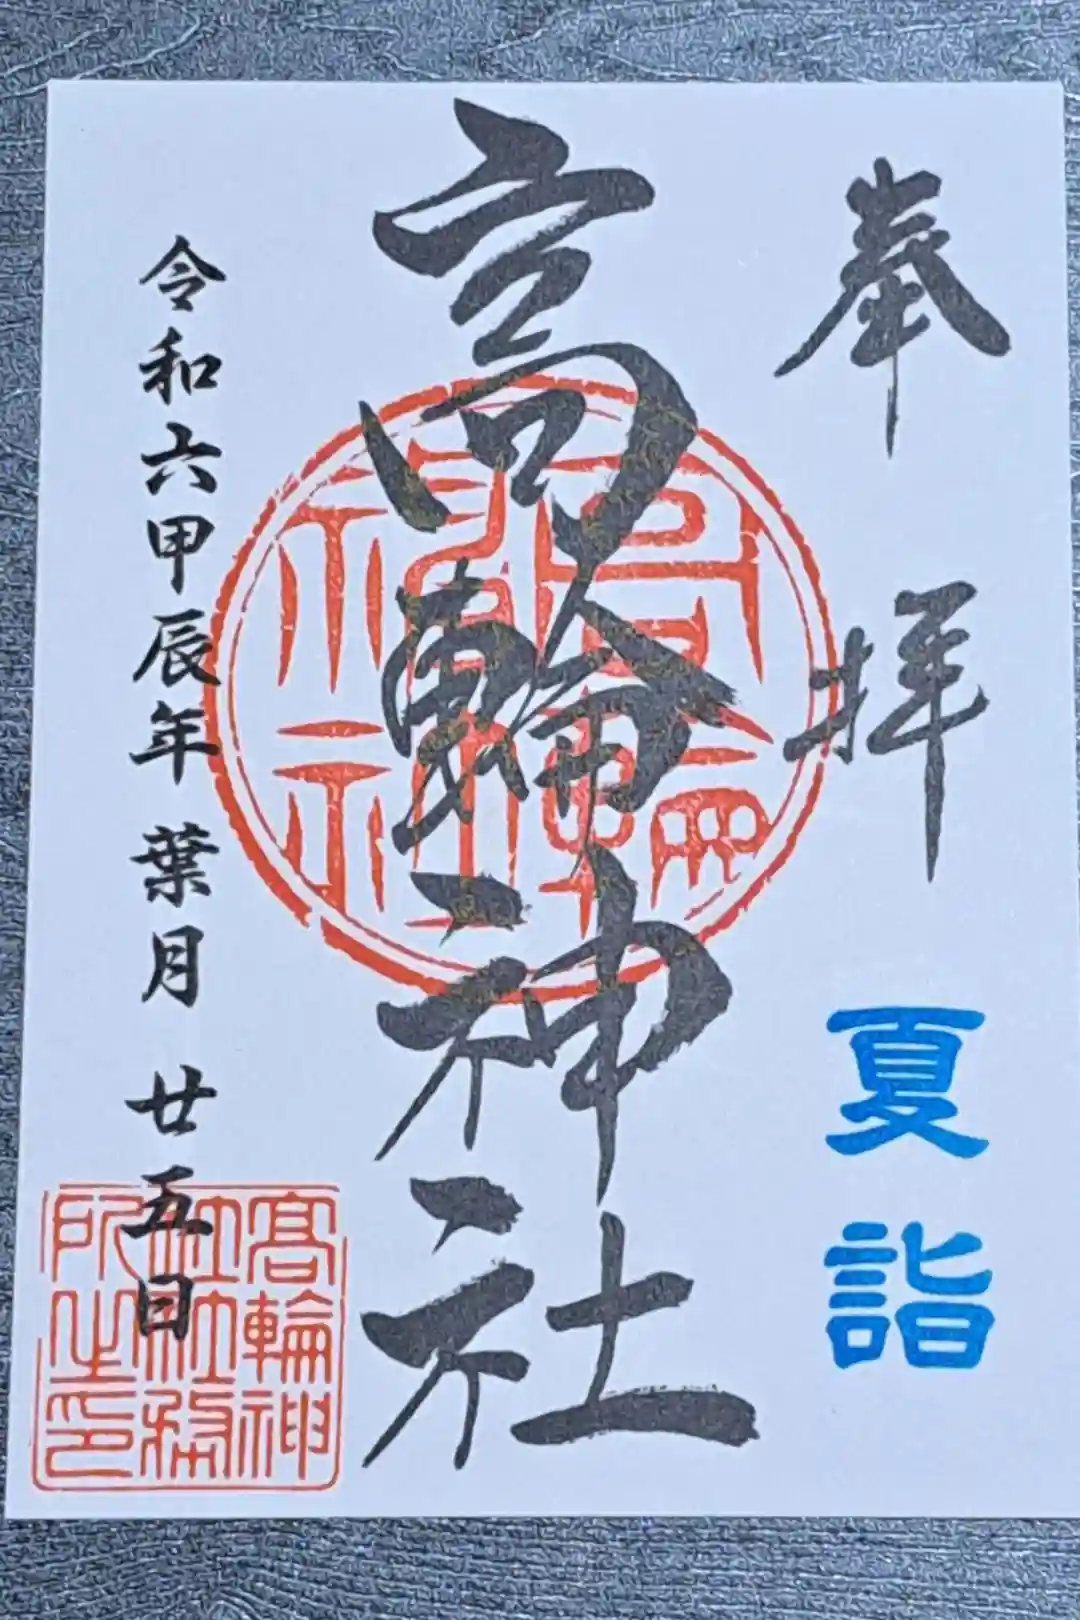 奉拝
夏詣
高輪神社
令和六甲辰年 葉月 廿五日
高輪神社
高輪神
社社務
所之印